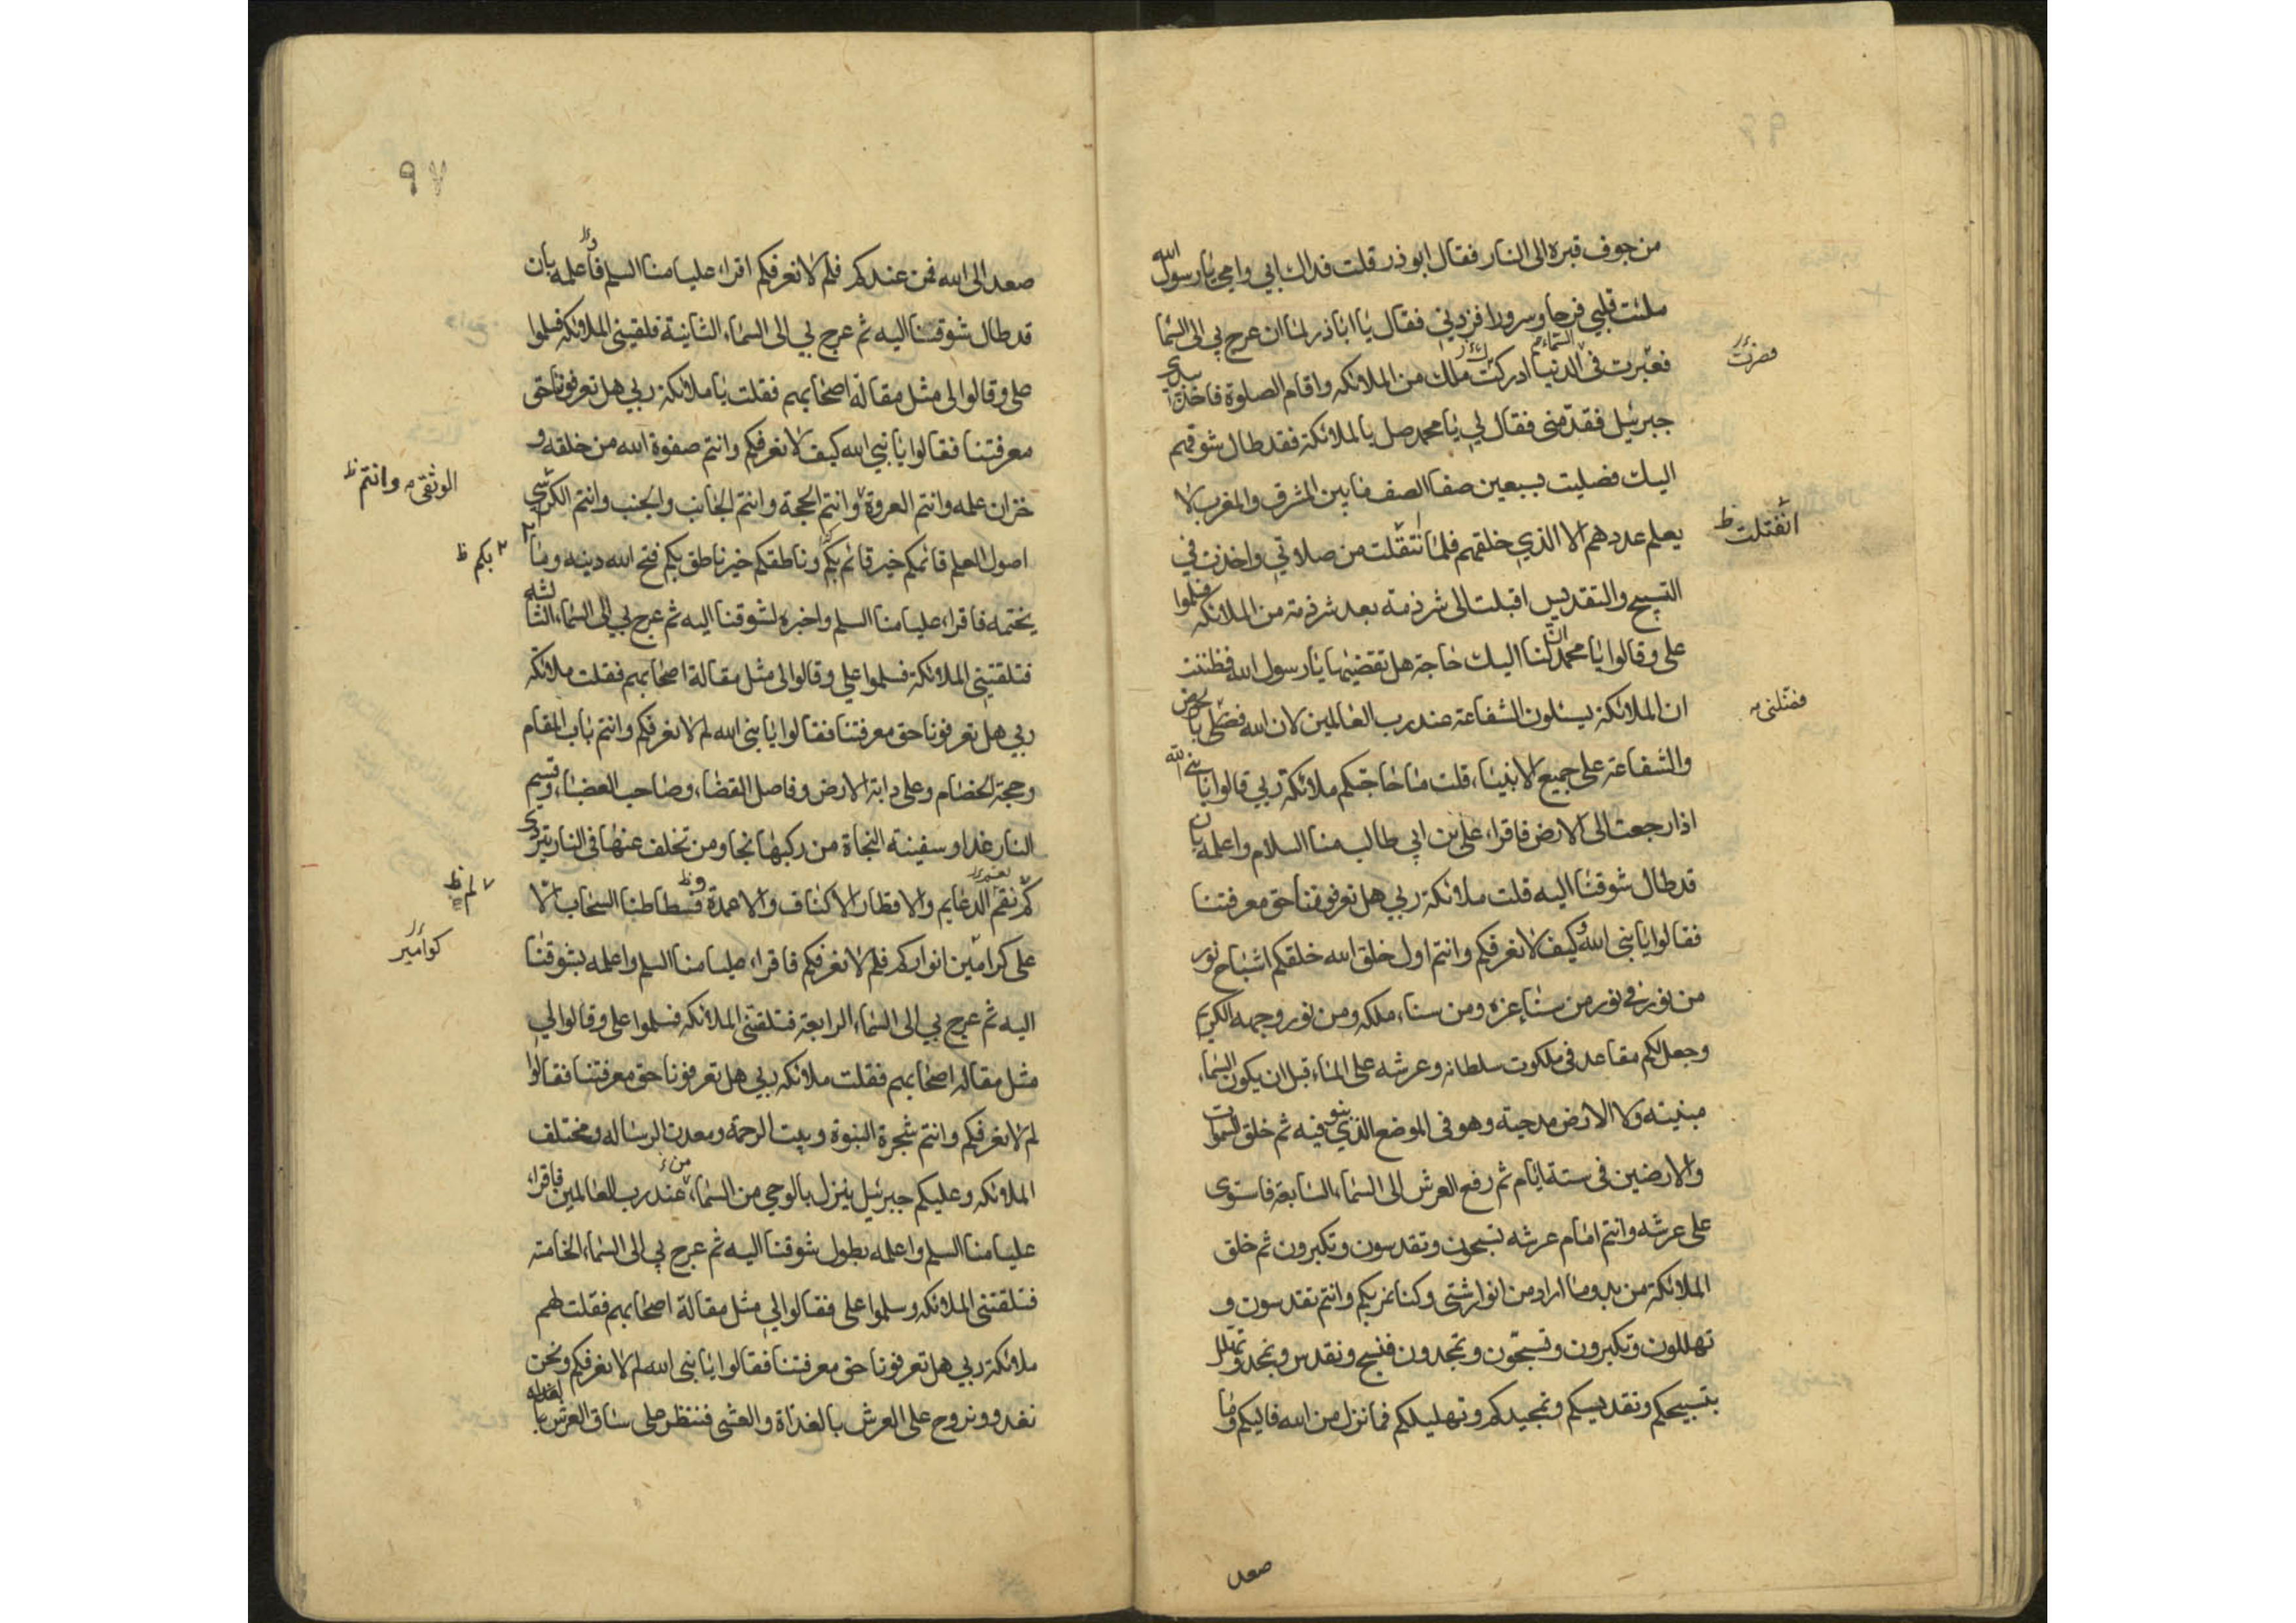 من جوف قبره الى النار فقال ابوذر قلت فداك ابي وامي يا رسول الله
ملئت قلبي فرحا وسرورا فزدني فقال يا اباذر لما ان عرج بي الى السما
فعبرت في الدنيا ادركت ملك من الملائكه واقام الصلوة فاخذ بيدي
جبرئيل فقدمني فقال لي يا محمد صل بالملائكة فقد طال شوقهم
اليك فصليت بسبعين صفا الصف ما بين المشرق والمغرب لا
يعلم عددهم الا الذي خلقهم فلما انتقلت من صلاتي واخذت في
التسبيح والتقديس اقبلت الى شرذمة بعد شرذمة من الملائكه فسلموا
علي وقالوا يا محمد ان لنا اليك حاجة هل تقضيها يا رسول الله فظننت
ان الملائكة يسئلون الشفاعة عند رب العالمين لان الله فضلي بالحوض
والشفاعة على جميع الانبياء قلت ما حاجتكم ملائكة ربي قالوا يا نبي الله
اذا رجعت الى الارض فاقراء علي بن ابي طالب منا السلام واعلمه بان
قد طال شوقنا اليه قلت ملائكة ربي هل تعرفوننا حق معرفتنا
فقالوا يا نبي الله وكيف لا نعرفكم وانتم اول خلق الله خلقكم اشباح نور
من نور في نور من سناء عزه ومن سناء ملكه ومن نور وجهه الكريم
وجعل لكم مقاعد في ملكوت سلطانه وعرشه على الماء قبل ان يكون السماء
مبنية ولا الارض مدحية وهو في الموضع الذي ينوفيه ثم خلق السموات
والارضين في ستة ايام ثم رفع العرش الى السماء السابعة فاستوى
على عرشه وانتم امام عرشه تسبحون وتقدسون وتكبرون ثم خلق
الملائكة من بدو ما اراد من انوار شتى وكنا نمر بكم وانتم تقدسون و
تهللون وتكبرون وتسبحون وتمجدون فنسبح ونقدس ونمجد ونهلل
بتسبيحكم وتقديسكم وتمجيدكم وتهليلكم فما نزل من الله فاليكم وما
صعد
فصرت
انفتلت ظ
فضلني
٩٧
صعد الى الله فمن عندكم فلم لا نعرفكم اقراء عليا منا السلم فاعلمه بان
قد طال شوقنا اليه ثم عرج بي الى السماء الثانية فلقيني الملائكه فسلموا
علي وقالوا لي مثل مقالة اصحابهم فقلت يا ملائكة ربي هل تعرفونا حق
معرفتنا فقالوا يا نبي الله كيف لا نعرفكم وانتم صفوة الله من خلقه و
خزان علمه وانتم العروة وانتم الحجة وانتم الجانب والجنب وانتم الكرسي
اصول العلم قائمكم خير قائم بكم وناطقكم خير ناطق بكم فتح الله دينه وما
يختمه فاقراء عليا منا السلم واخبره لشوقنا اليه ثم عرج بي الى السماء الثالثة
فتلقتني الملائكة فسلموا علي وقالوا لي مثل مقالة اصحابهم فقلت ملائكة
ربي هل تعرفونا حق معرفتنا فقالوا يا نبي الله لم لا نعرفكم وانتم باب المقام
وحجة الخصام وعلي دابة الارض وفاصل القضاء وصاحب العضباء وقسيم
النار غدا وسفينة النجاة من ركبها نجا ومن تخلف عنها في النار يتردى
نقم الدعايم والاقطار الاكناف والاعمدة فسطاطنا السحاب الا
على كرامين انواركم فلم لا نعرفكم فاقراء عليا منا السلم واعلمه بشوقنا
اليه ثم عرج بي الى السماء الرابعة فتلقتني الملائكة فسلموا علي وقالوا لي
مثل مقالة اصحابهم فقلت ملائكة ربي هل تعرفونا حق معرفتنا فقالوا
لم لا نعرفكم وانتم شجرة النبوة وبيت الرحمة ومعدن الرسالة ومختلف
الملائكة وعليكم جبرئيل ينزل بالوحي من السماء من عند رب العالمين فاقراء
عليا منا السلم واعلمه بطول شوقنا اليه ثم عرج بي الى السماء الخامسة
فتلقتني الملائكة وسلموا علي فقالوا لي مثل مقالة اصحابهم فقلت لهم
ملائكة ربي هل تعرفونا حق معرفتنا فقالوا يا نبي الله لم لا نعرفكم ونحن
نغدو ونروح على العرش بالغداة والعشي فننظر على ساق العرش
الوثقى وانتم ظ
بكم ظ
لم ظ
كوامير